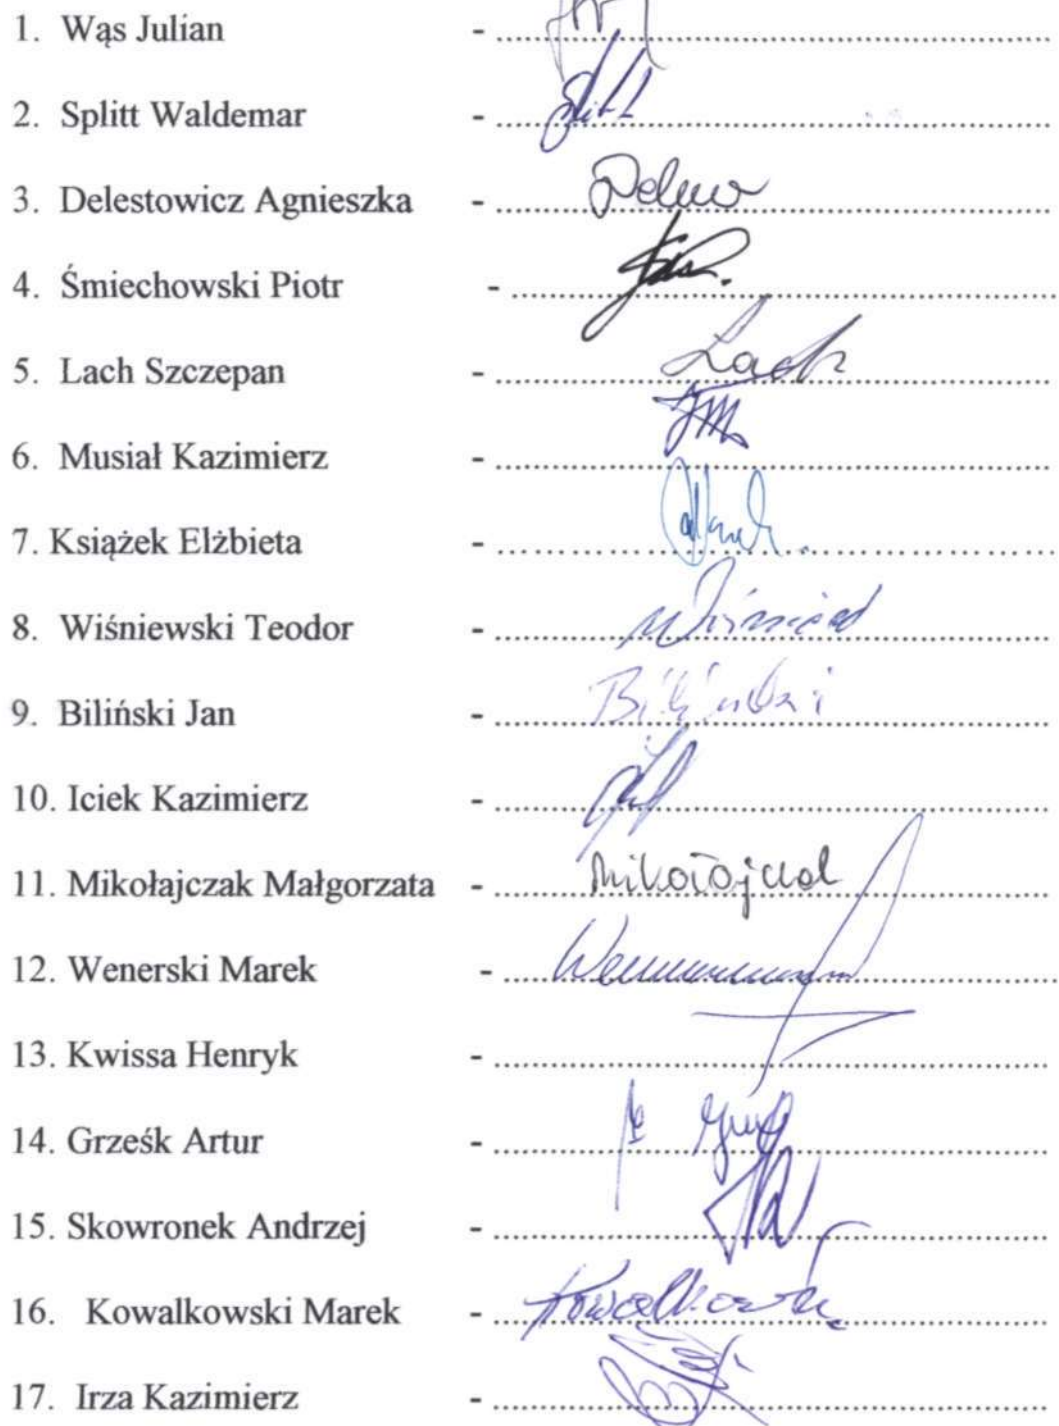 1. Wąs Julian - ........................................
2. Splitt Waldemar - ........................................
3. Delestowicz Agnieszka - ........................................
4. Śmiechowski Piotr - ........................................
5. Lach Szczepan - ........Lach........
6. Musiał Kazimierz - ........................................
7. Książek Elżbieta - ........................................
8. Wiśniewski Teodor - ........................................
9. Biliński Jan - ........Biliński........
10. Iciek Kazimierz - ........................................
11. Mikołajczak Małgorzata - ........................................
12. Wenerski Marek - ........................................
13. Kwissa Henryk - ........................................
14. Grześk Artur - ........................................
15. Skowronek Andrzej - ........................................
16. Kowalkowski Marek - ........................................
17. Irza Kazimierz - ........................................